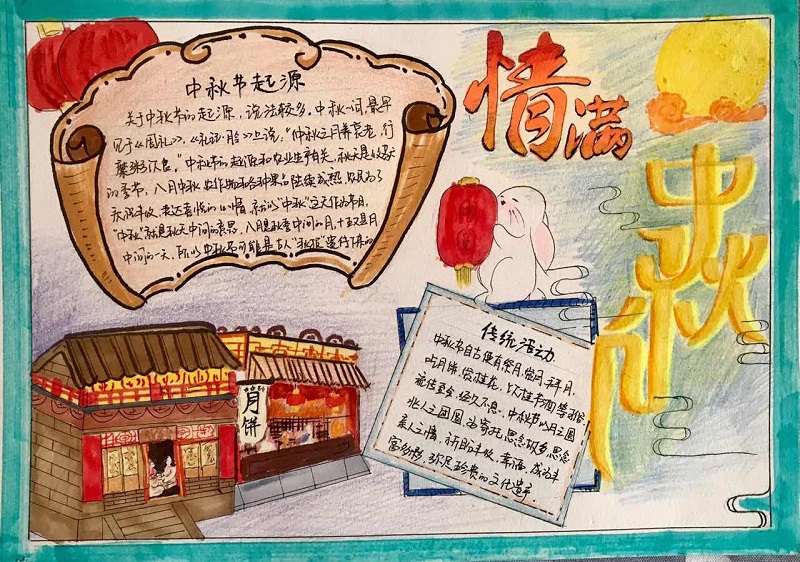 情满
中秋
中秋节起源
关于中秋节的起源,说法较多,中秋一词,最早
见于《周礼》,《礼记·月令》上说:"仲秋之月养衰老,行
糜粥饮食。"中秋节的起源和农业生产有关,秋天是收获
的季节,八月中秋,农作物和各种果品陆续成熟,农民为了
庆祝丰收,表达喜悦的心情,就以"中秋"这天作为节日,
"中秋"就是秋天中间的意思,八月是秋季中间的月,十五又是月
中间的一天,所以中秋节可能是古人"秋报"遗传下来的
月
饼
传统活动
中秋节自古便有祭月、赏月、拜月、
吃月饼、赏桂花、饮桂花酒等习俗,
流传至今,经久不息。中秋节以月之圆
兆人之团圆,为寄托思念故乡,思念
亲人之情,祈盼丰收、幸福,成为丰
富多彩、弥足珍贵的文化遗产